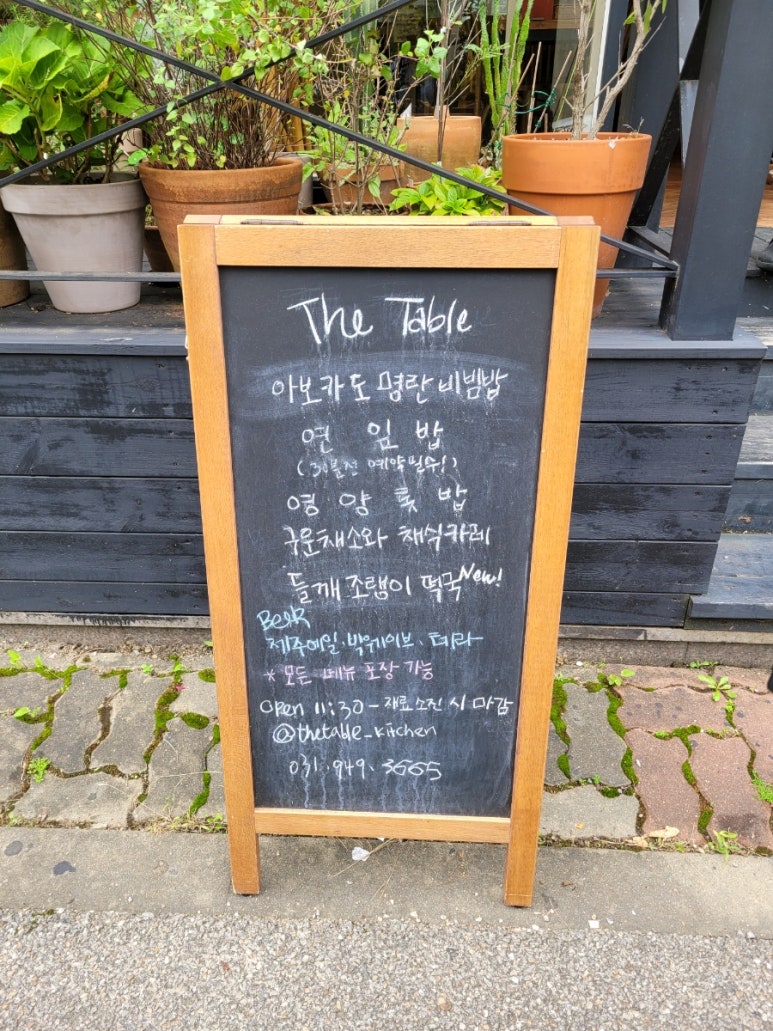 The Table
아보카도 명란 비빔밥
연 잎 밥
(30분전 예약필수!)
영 양 톳 밥
구운채소와 채식카레
들깨 조랭이 떡국 New!
Beer
제주에일. 빅웨이브. 테라
* 모든 메뉴 포장 가능
open 11:30 - 재료소진 시 마감
@thetable_kitchen
031. 949. 3665